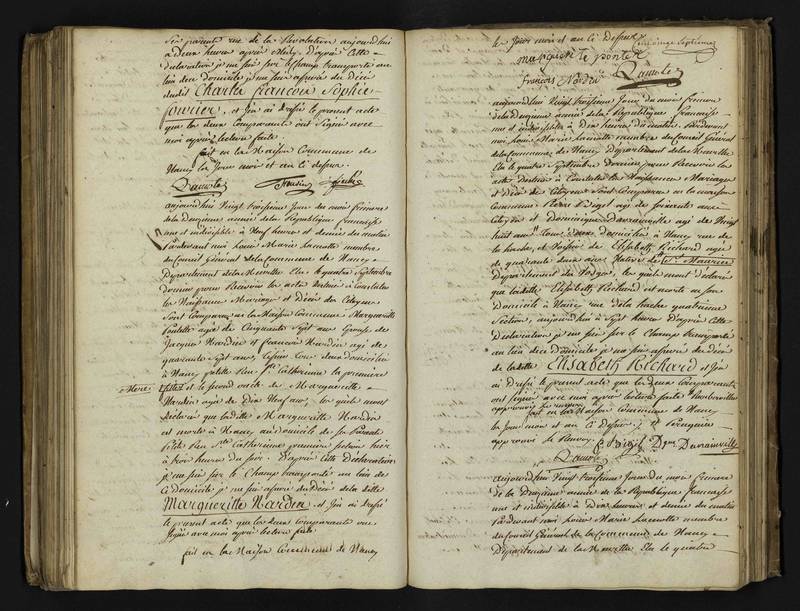 Ses parents rue de la Revolution aujourd'hui
a Deux heures après Midy D'après Cette
declaration je me suis sur le champ transporté au
lieu du Domicile je me suis assuré du Décés
dudit Charle françois Sophie
fourier, et j'en ai Dressé le present acte
que les deux Comparants ont Signé avec
moi après lecture faite
fait en la Maison Commune de
Nancy les Jour mois et an ci dessus.
Lamotte
aujourd'huy Vingt troisieme Jour du mois frimaire
de la Deuxieme année de la Republique françaiSe
une et indivisible à Neuf heures et demie du matin
Pardevant moi Louis Marie Lamotte membre
du Conseil Général de la Commune de Nancy
Departement de la Meurthe Elu le quatre Septembre
dernier pour Recevoir les actes Destinés à Constater
les Naissance Mariage et Décés des Citoyens
Sont Comparus en la Maison Commune Marguerite
agée de Cinquante Sept ans Epouse de
Jacques Nardin et francois Nardin agé de
quarante Sept ans, tous deux domiciliés
à Nancy petite Rue Ste Catherine la premiere
Mere
et le second oncle de Marguerite
Nardin agée de Dix Neuf ans, les quels m'ont
declaré que ladite Margueritte Nardin
est morte à Nancy au domicile de Ses Parents
Petite Rue Ste Catherine premiere Section hier
à trois heures du Soir. D'après Cette Déclaration
je me suis sur le Champ transporté au lieu de
ce domicile je me suis assuré du Décés de la ditte
Margueritte Nardin et j'en ai Dressé
le present acte que les deux Comparants ont
Signé avec moi après lecture faite
fait en la Maison Commune de Nancy
les Jour mois et an ci Dessus
Cent vingt Septieme
marguerite
françois Nardin
Lamotte
aujourd'hui Vingt troisieme Jour du mois frimaire
de la Deuxieme année de la Republique Française
une et indivisible à Dix heures du matin Pardevant
moi Louis Marie Lamotte membre du Conseil Général
de la Commune de Nancy Departement de la Meurthe
Elu le quatre Septembre Dernier pour Recevoir les
actes Destinés à Constater les Naissance Mariage
et Décés des Citoyens Sont Comparus en la maison
Commune Pierre Virget agé de soixante ans
Citoyen et Dominique Darainville agé de Vingt
huit ans tous deux domiciliés à Nancy rue de
la hache, et de Elisabeth Richard agée
de quarante deux ans Native de St. Maurice
Departement des Vosges, les quels m'ont declaré
que ladite Elisabeth Richard est morte en son
Domicile à Nancy rue de la hache quatrieme
Section, aujourd'hui à Sept heures D'après Cette
Declaration je me suis sur le Champ transporté
au lieu dudit Domicile je me suis assuré du Décés
de ladite Elisabeth Richard et j'en
ai Dressé le present acte que les deux Comparants
ont Signé avec moi après lecture faite
fait en la Maison Commune de Nancy
les Jour mois et an ci Dessus
approuvé
Lamotte
aujourd'huy Vingt troisieme Jour du mois frimaire
de la Deuxieme année de la Republique française
une et indivisible à Dix heures et demie du matin
Pardevant moi Louis Marie Lamotte membre
du Conseil Général de la Commune de Nancy
Departement de la Meurthe Elu le quatre